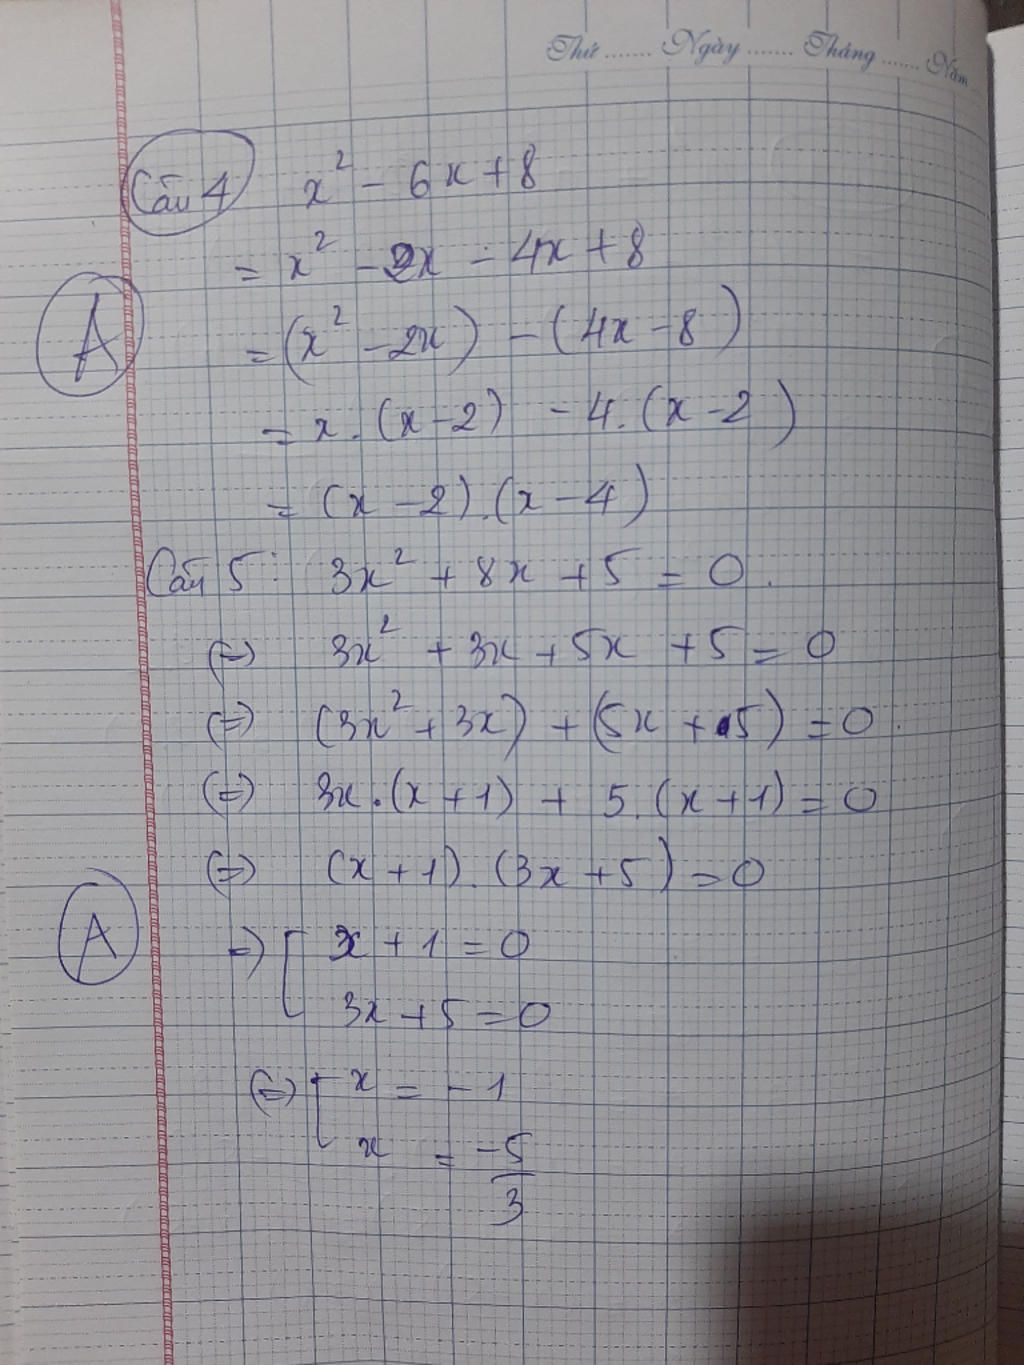 Thứ ....... Ngày ....... Tháng ....... Năm
Câu 4 x² - 6x + 8
= x² - 2x - 4x + 8
A
= (x² - 2x) - (4x - 8)
= x . (x - 2) - 4 . (x - 2)
= (x - 2) . (x - 4)
Câu 5 : 3x² + 8x + 5 = 0 .
(=) 3x² + 3x + 5x + 5 = 0
(=) (3x² + 3x) + (5x + 5) = 0 .
(=) 3x . (x + 1) + 5 . (x + 1) = 0
(=) (x + 1) . (3x + 5) = 0
A
=) [ x + 1 = 0
3x + 5 = 0
(=) [ x = - 1
x = -5/3